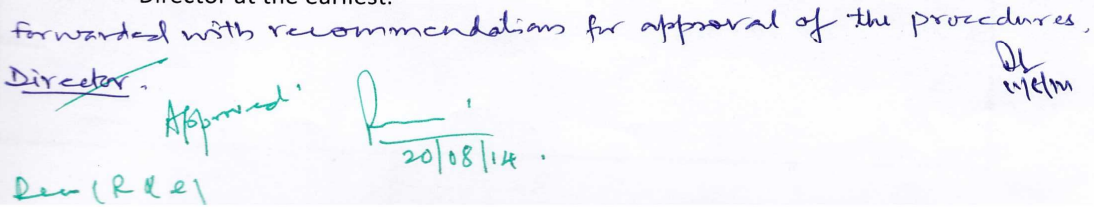 Director at the earliest.
forwarded with recommendations for approval of the procedures,
Director.
Approved
20/08/14.
(R & e)